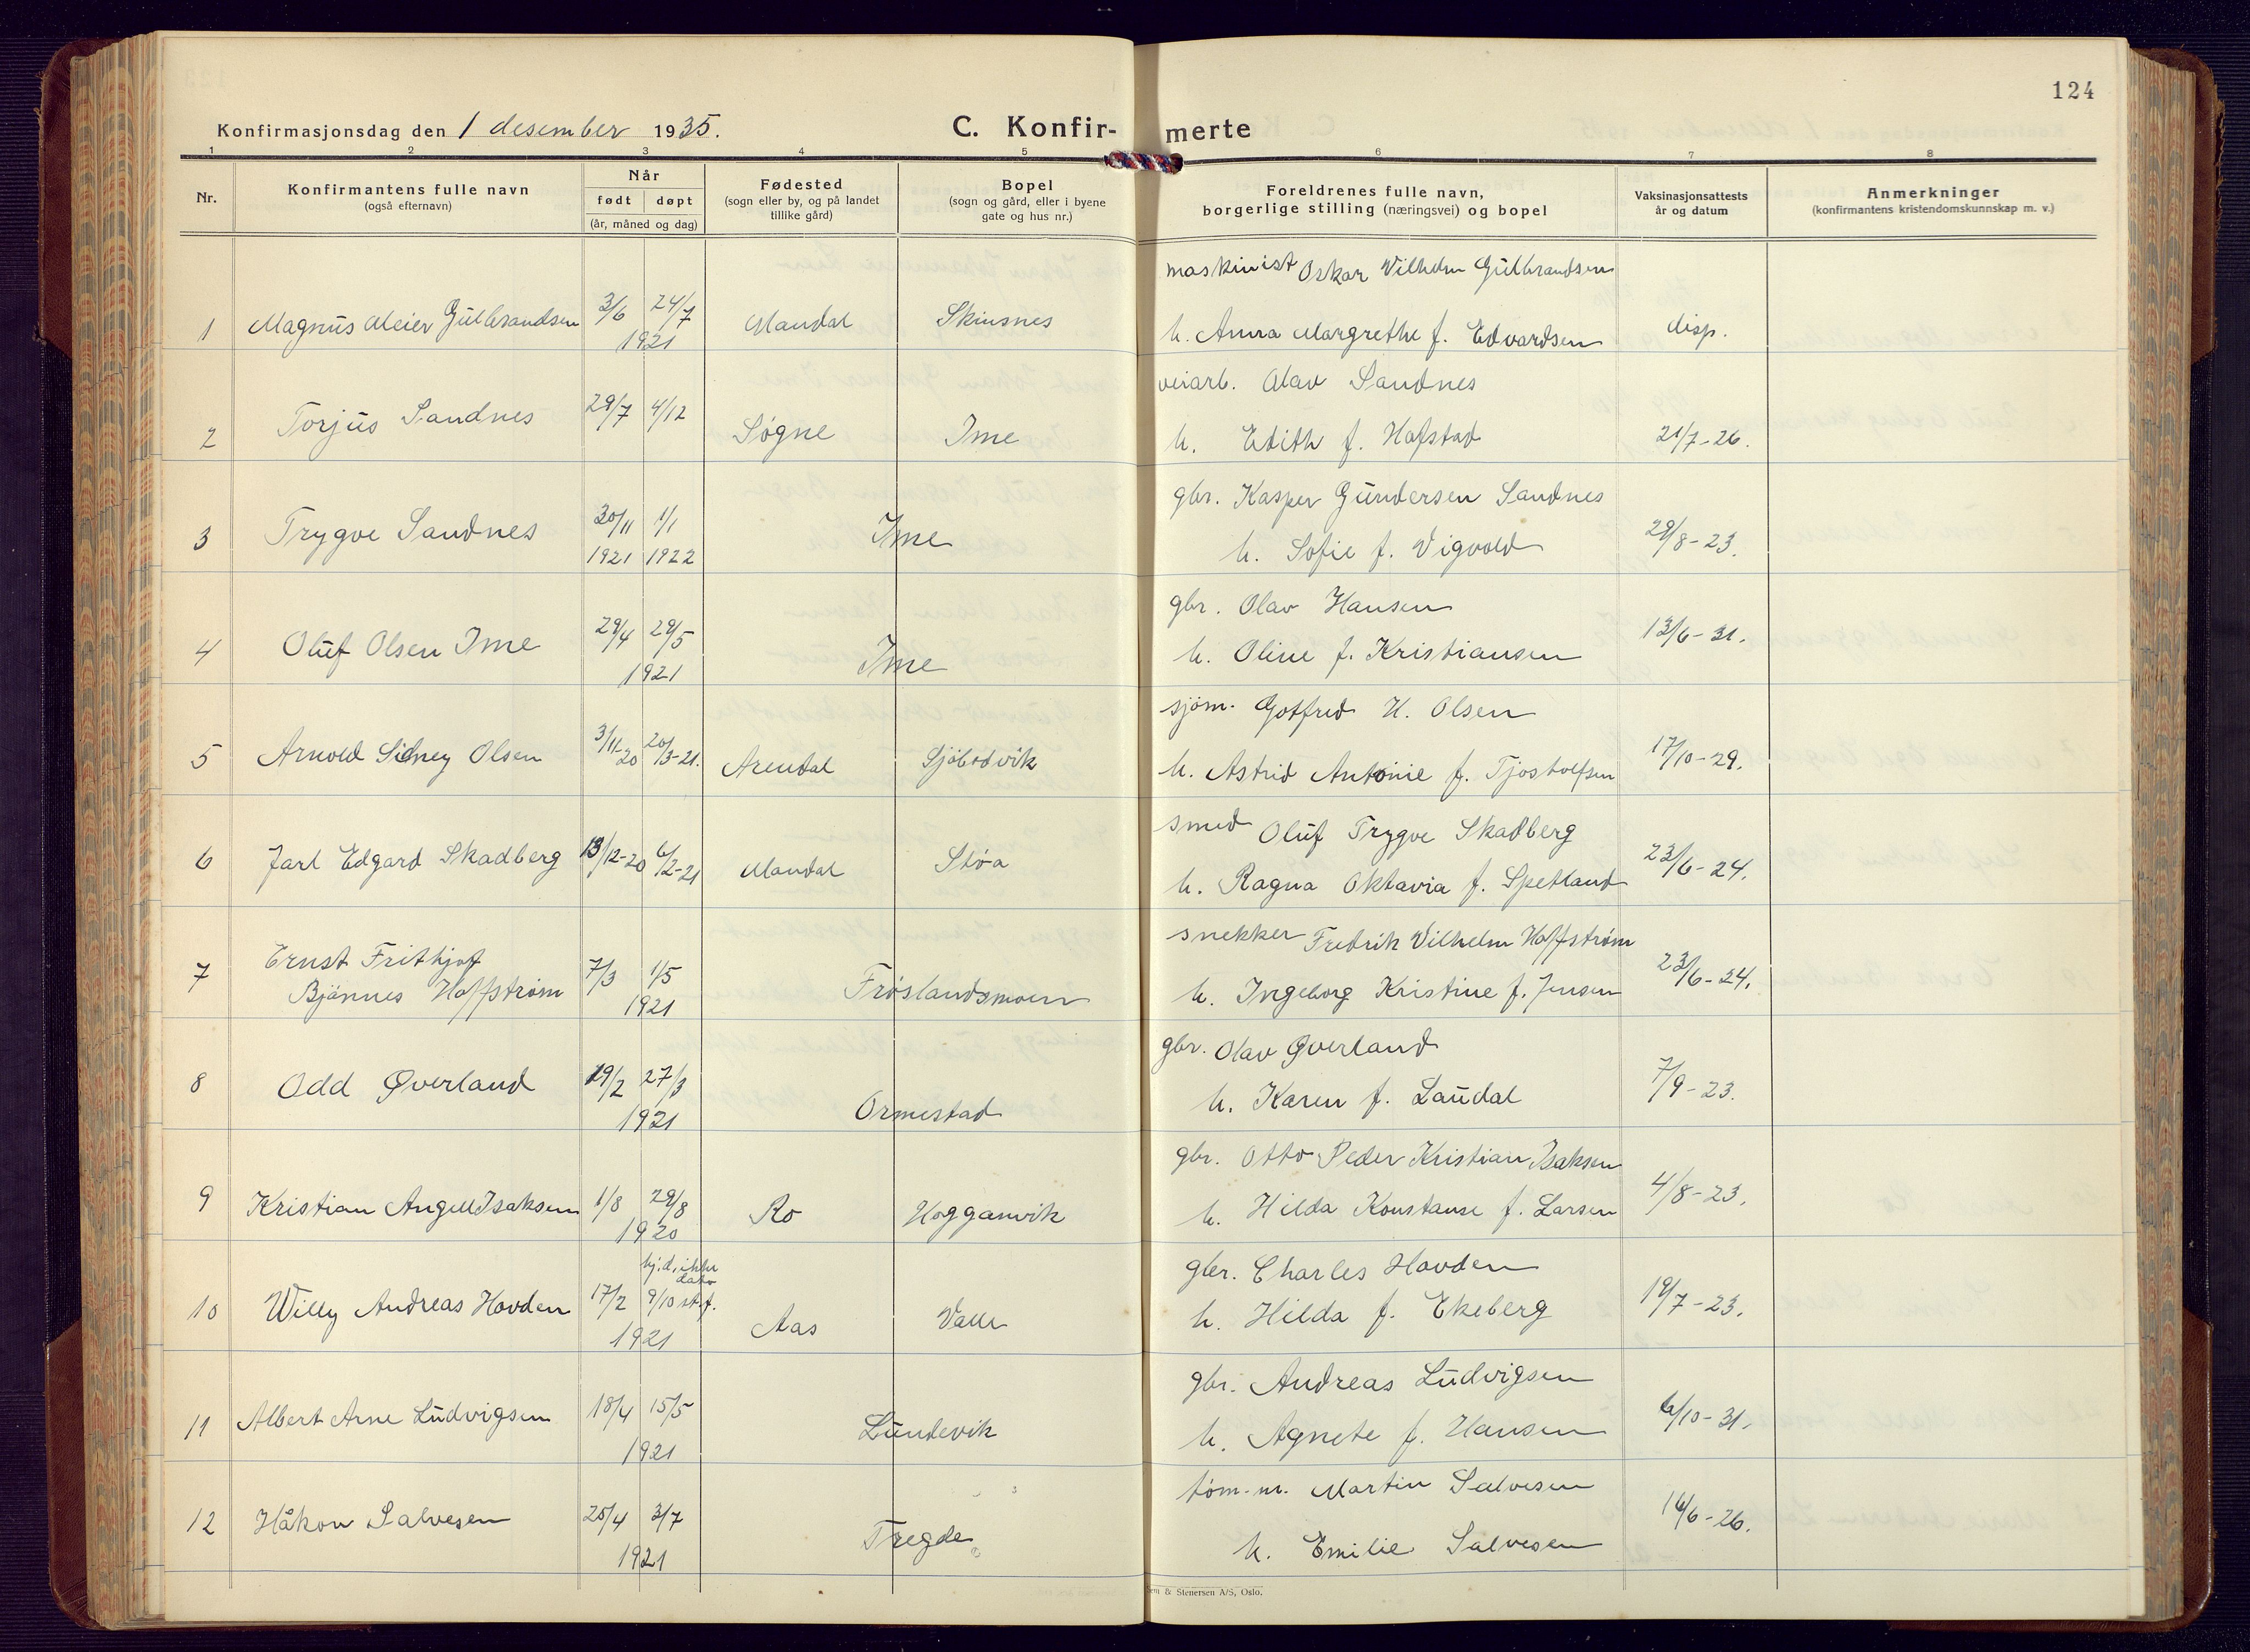 124
Konfirmasjonsdag den 1 desember 1935.
C. Konfir- merte
1 2 3 4 5 6 7 8
Nr.
Konfirmantens fulle navn
(også efternavn)
Når
født døpt
(år, måned og dag)
Fødested
(sogn eller by, og på landet
tillike gård)
Bopel
(sogn og gård, eller i byene
gate og hus nr.)
Foreldrenes fulle navn,
borgerlige stilling (næringsvei) og bopel
Vaksinasjonsattests
år og datum
Anmerkninger
(konfirmantens kristendomskunnskap m. v.)
maskinist Oskar Vilhelm Gulbrandsen
1 Magnus Meier Gulbrandsen 3/6 24/7 Mandal Skinsnes h. Anna Margrethe f. Edvardsen disp.
1921
veiarb. Olav Sandnes
2 Torjus Sandnes 29/7 4/12 Søgne Ime h. Edith f. Hafstad 21/7-26.
gbr. Kasper Gundersen Sandnes
3 Trygve Sandnes 30/11 1/1 Ime h. Sofie f. Vigvold 29/8-23.
1921 1922
gbr. Olav Hansen
4 Oluf Olsen Ime 29/4 29/5 Ime h. Oline f. Kristiansen 13/6-31.
1921
sjøm. Gotfred H. Olsen
5 Arnold Sidney Olsen 3/11-20 20/3-21. Arendal Sjøbodvik h. Astrid Antonie f. Tjostolfsen 17/10-29.
smed Oluf Trygve Skadberg
6 Jarl Edgard Skadberg 13/12-20 6/2-21 Mandal Støa h. Ragna Oktavia f. Spetland 23/6-24.
snekker Fredrik Vilhelm Hoffstrøm
7 Ernst Frithjof
Bjånnes Hoffstrøm 7/3 1/5 Frøslandsmoen h. Ingeborg Kristine f. Jensen 23/6-24.
1921
gbr. Olav Øverland
8 Odd Øverland 19/2 27/3 Ormestad h. Karen f. Laudal 7/9-23.
1921
gbr. Otto Peder Kristian Isaksen
9 Kristian Angell Isaksen 1/8 29/8 Ro Hogganvik h. Hilda Konstanse f. Larsen 4/8-23.
1920
hj.d. ikke
dato
gbr. Charles Hovden
10 Willy Andreas Hovden 17/2 9/10 st.f. Aas Valle h. Hilda f. Ekeberg 19/7-23.
1921
gbr. Andreas Ludvigsen
11 Albert Arne Ludvigsen 18/4 15/5 Lundevik h. Agnete f. Hansen 6/10-31.
1921
tøm.m. Martin Salvesen
12 Håkon Salvesen 25/4 3/7 Tregde h. Emilie Salvesen 14/6-26.
1921
& Stenersen A/S, Oslo.